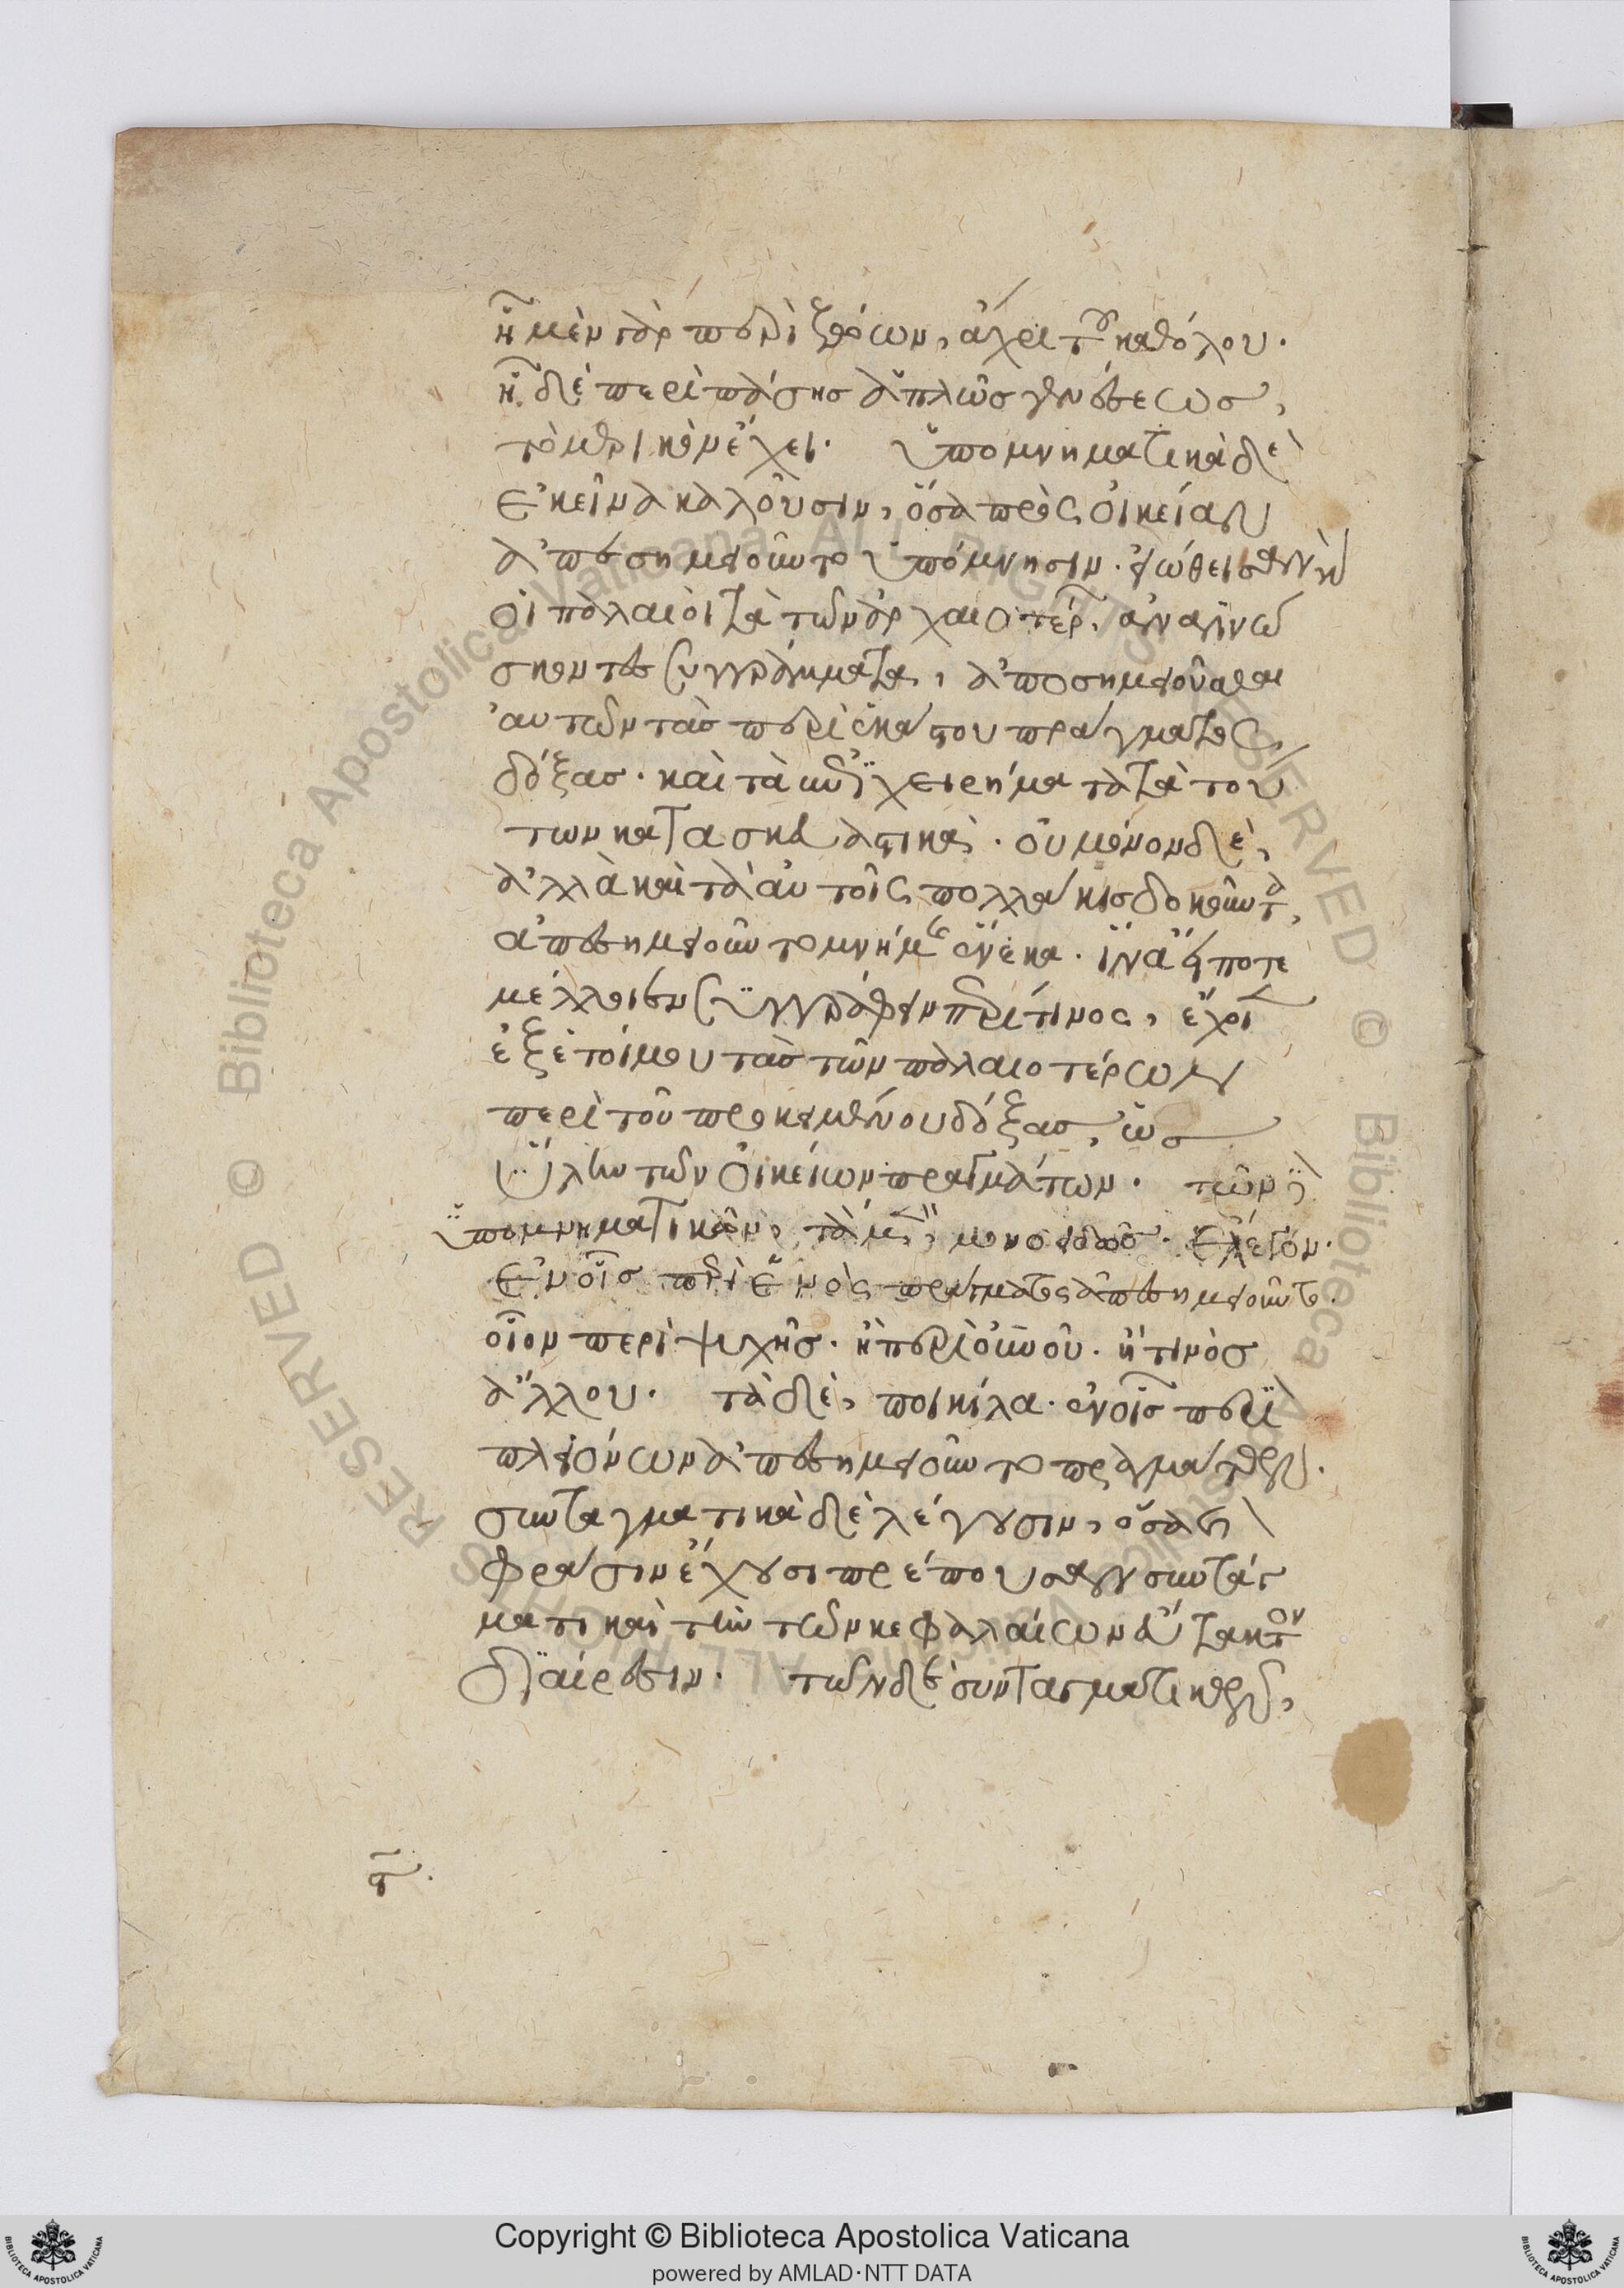 ἡ μὲν γὰρ περὶ ζώων, ἄχρι τοῦ καθόλου.
ἡ δὲ περὶ πάσης ἁπλῶς γενέσεως,
τὸ μερικὸν ἔχει. ὑπομνηματικὰ δὲ
ἐκεῖνα καλοῦσιν, ὅσα πρὸς οἰκείαν
ἀπεσημειοῦντο ὑπόμνησιν. εἰώθεισαν γὰρ
οἱ παλαιοὶ τὰ τῶν ἀρχαιοτέρων ἀναγινώ
σκοντες συγγράμματα, ἀποσημειοῦσθαι
αὐτῶν τὰς περὶ ἑκάστου πράγματος
δόξας. καὶ τὰ ἐπιχειρήματα τὰ τού
των κατασκευαστικά. οὐ μόνον δὲ,
ἀλλὰ καὶ τὰ αὐτοῖς πολλάκις δοκοῦντα,
ἀπεσημειοῦντο μνήμης ἕνεκα. ἵνα εἴ ποτε
μέλλοιεν συγγράφειν περί τινος, ἔχοιεν
ἐξ ἑτοίμου τὰς τῶν παλαιοτέρων
περὶ τοῦ προκειμένου δόξας, ὡς
ὕλην τῶν οἰκείων πραγμάτων. τῶν δὲ
ὑπομνηματικῶν, τὰ μὲν, μονοειδῶς ἔλεγον.
ἐν οἷς περὶ ἑνὸς πράγματος ἀπεσημειοῦντο.
οἷον περὶ ψυχῆς. ἢ περὶ οὐνοῦ. ἤ τινος
ἄλλου. τὰ δὲ, ποικίλα. ἐν οἷς περὶ
πλειόνων ἀπεσημειοῦντο πραγμάτων.
συνταγματικὰ δὲ λέγουσιν, ὅσα τὴν
φράσιν ἔχουσι πρέπουσαν συντάγ
ματι καὶ τὴν τῶν κεφαλαίων εὔτακτον
διαίρεσιν. τῶν δὲ συνταγματικῶν,
Copyright © Biblioteca Apostolica Vaticana
powered by AMLAD·NTT DATA